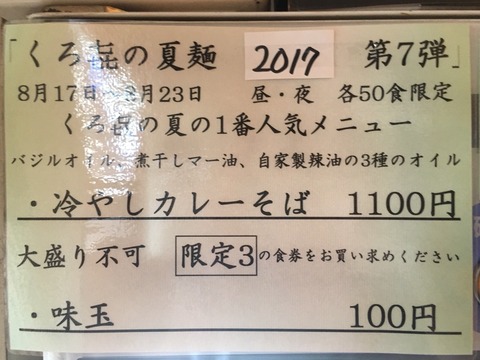 「くろ㐂の夏麺 2017 第7弾」
8月17日~8月23日 昼・夜 各50食限定
くろ㐂の夏の1番人気メニュー
バジルオイル、煮干しマー油、自家製辣油の3種のオイル
・冷やしカレーそば 1100円
大盛り不可 限定3の食券をお買い求めください
・味玉 100円